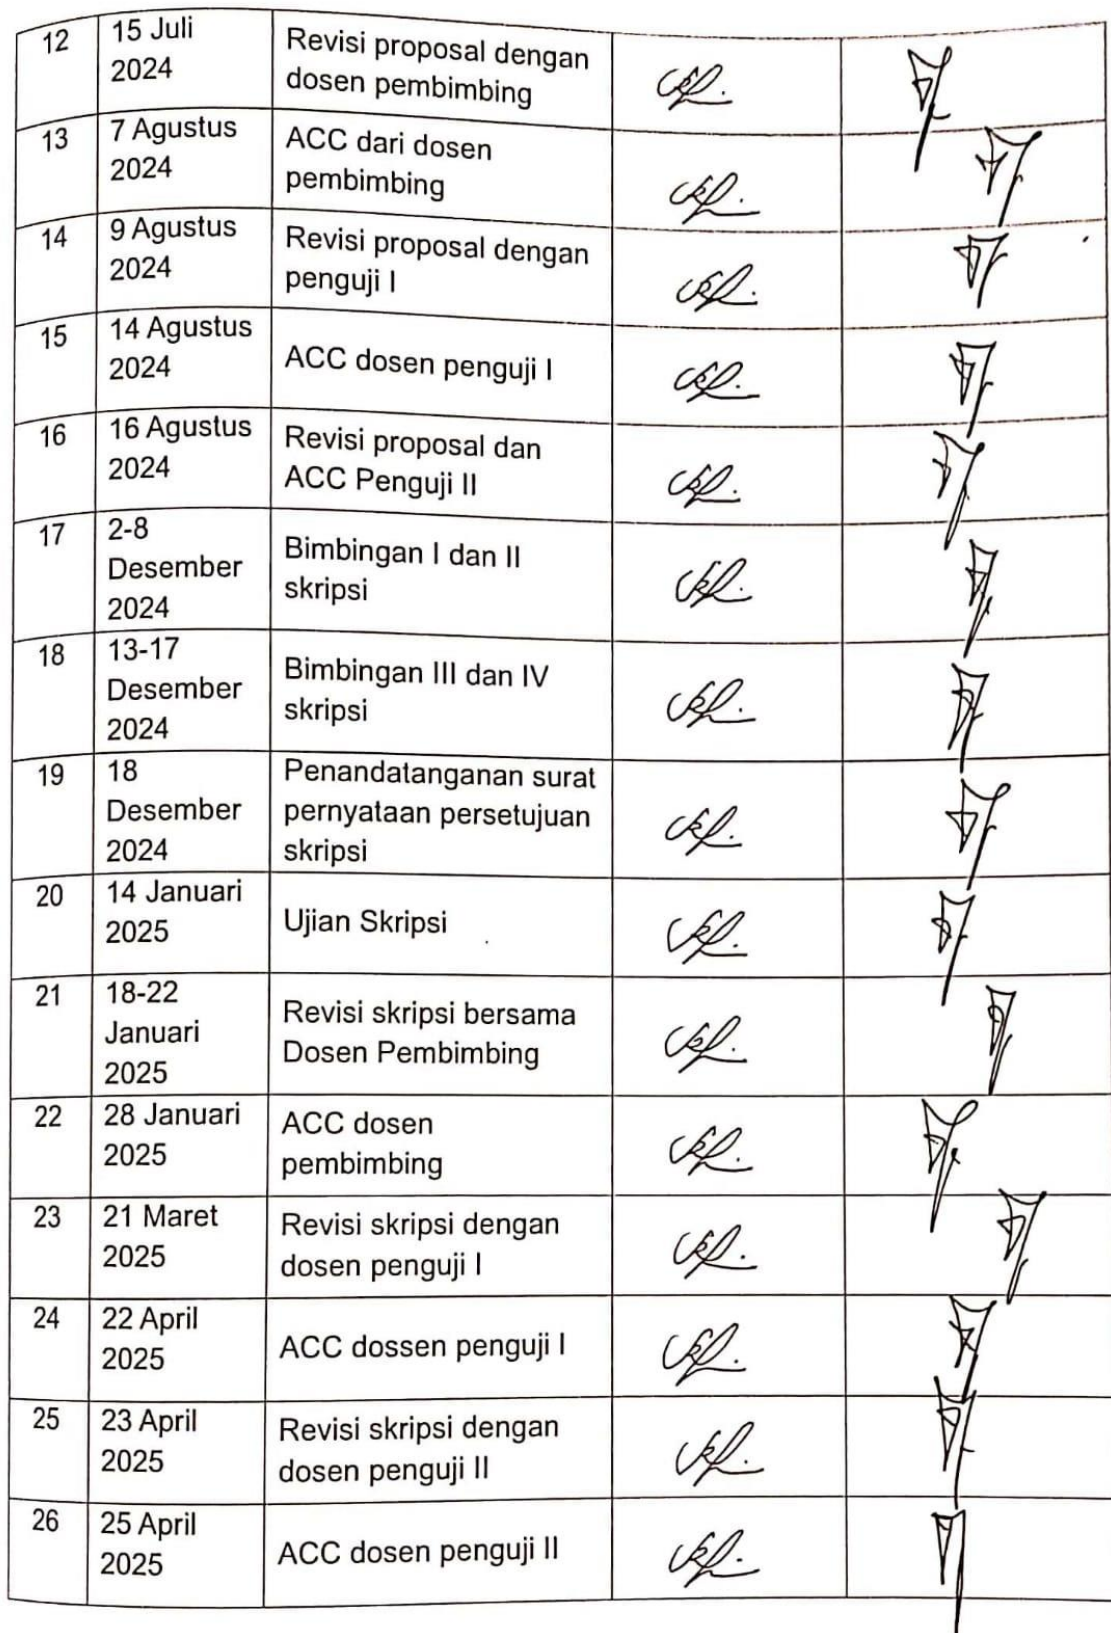 12
15 Juli
2024
Revisi proposal dengan
dosen pembimbing
13
7 Agustus
2024
ACC dari dosen
pembimbing
14
9 Agustus
2024
Revisi proposal dengan
penguji I
15
14 Agustus
2024
ACC dosen penguji I
16
16 Agustus
2024
Revisi proposal dan
ACC Penguji II
17
2-8
Desember
2024
Bimbingan I dan II
skripsi
18
13-17
Desember
2024
Bimbingan III dan IV
skripsi
19
18
Desember
2024
Penandatanganan surat
pernyataan persetujuan
skripsi
20
14 Januari
2025
Ujian Skripsi
21
18-22
Januari
2025
Revisi skripsi bersama
Dosen Pembimbing
22
28 Januari
2025
ACC dosen
pembimbing
23
21 Maret
2025
Revisi skripsi dengan
dosen penguji I
24
22 April
2025
ACC dossen penguji I
25
23 April
2025
Revisi skripsi dengan
dosen penguji II
26
25 April
2025
ACC dosen penguji II